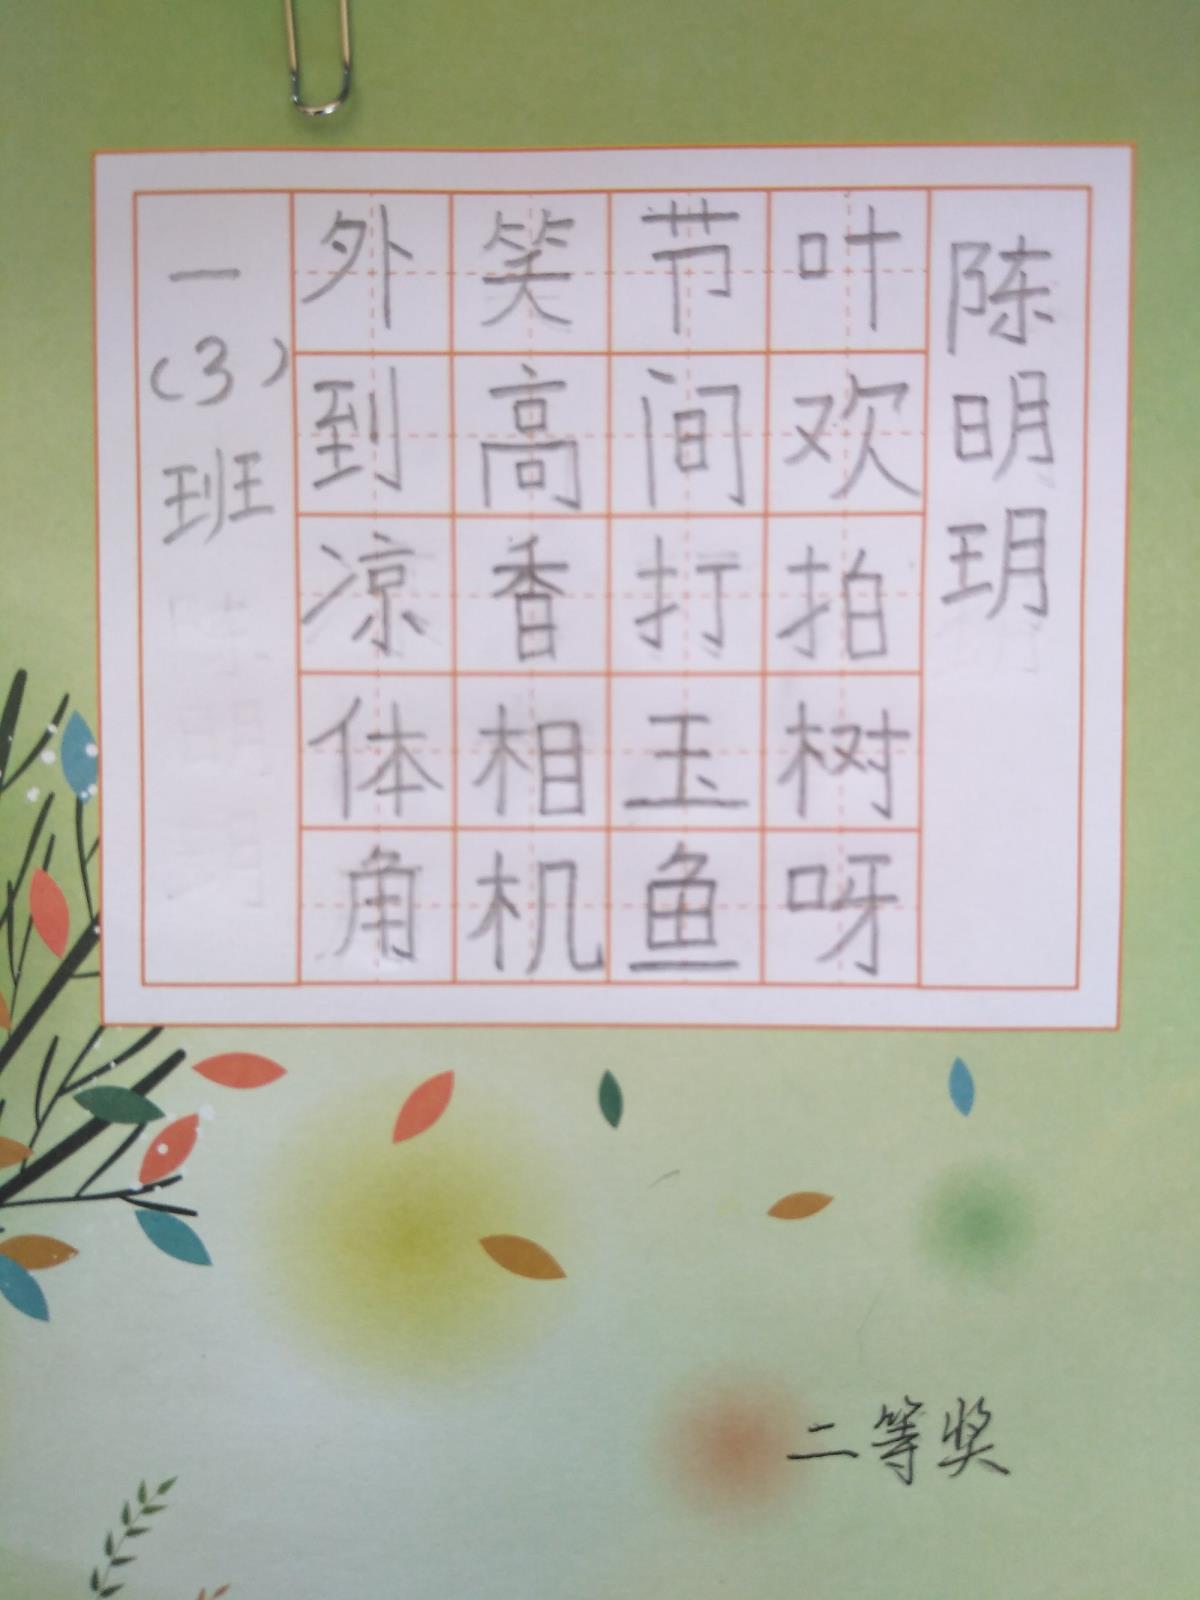 陈明玥
叶欢拍树呀
节间打玉鱼
笑高香相机
外到凉体角
一（3）班
二等奖